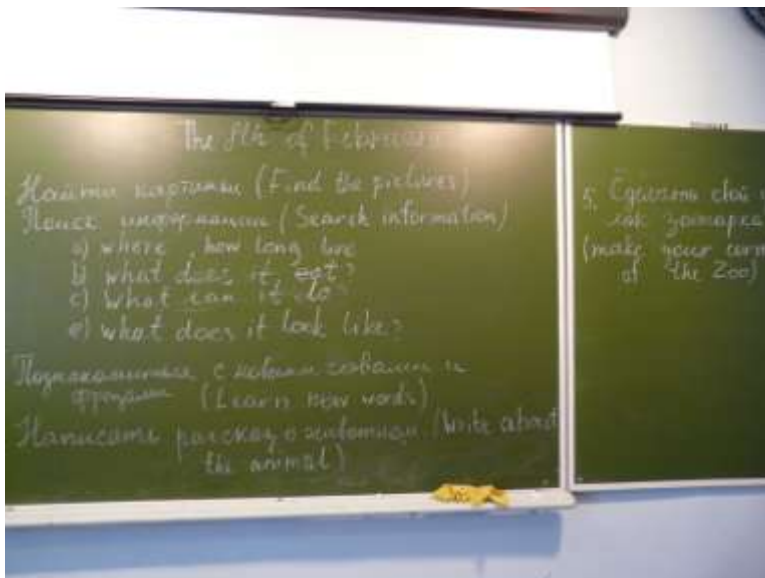 The 8th of February
Найти картинки (Find the pictures)
Поиск информации (Search information)
a) where, how long live
b) what does it eat?
c) what can it do?
e) what does it look like?
Познакомиться с новыми словами и
фразами (Learn new words)
Написать рассказ о животном (Write about
the animal)
5. Сделать свой
лок зоопарка
(make your corn
of the Zoo)